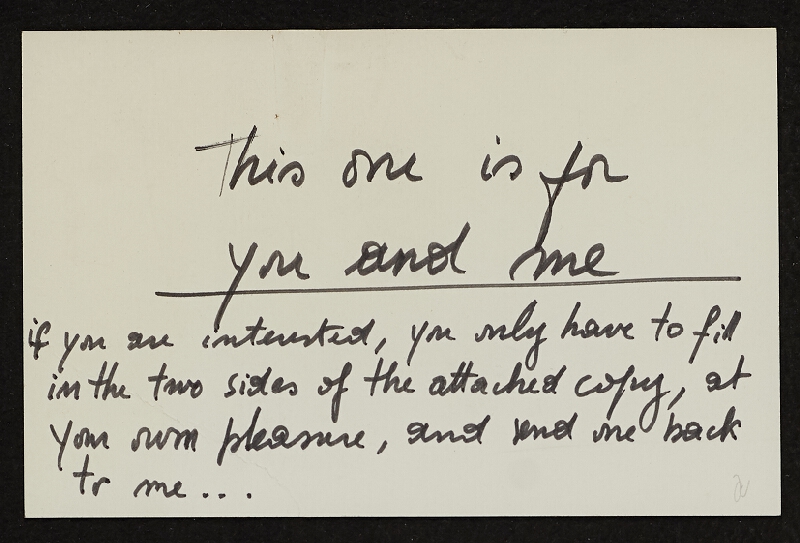 This one is for
you and me
if you are interested, you only have to fill
in the two sides of the attached copy, at
your own pleasure, and send one back
to me...